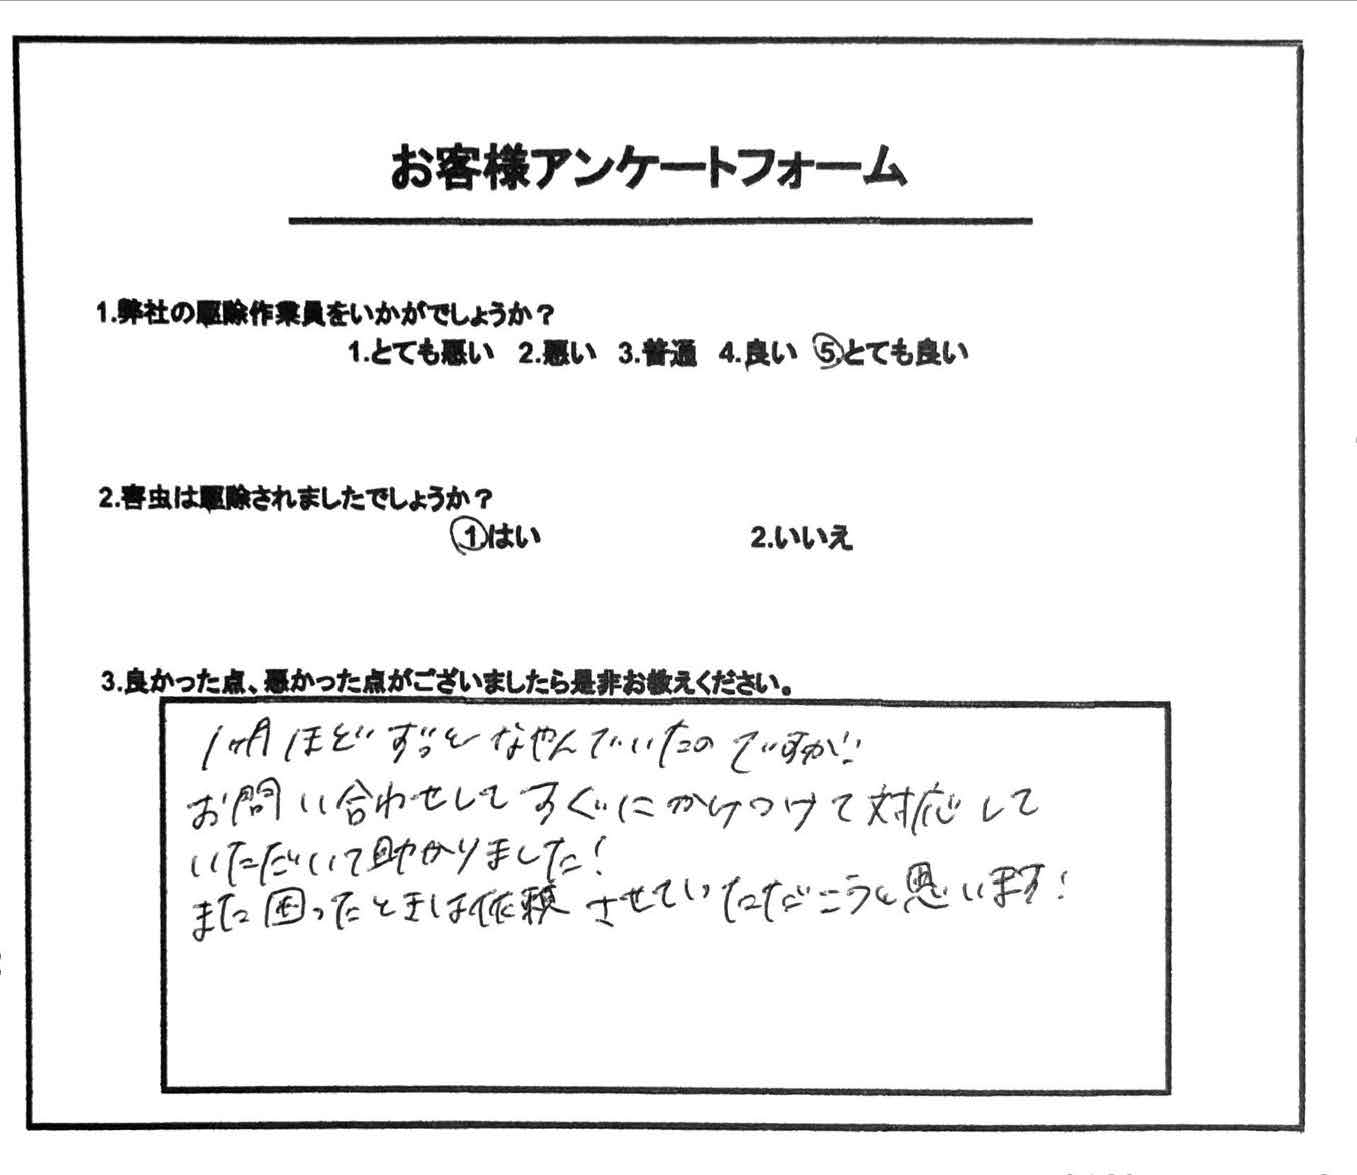 お客様アンケートフォーム
1.弊社の駆除作業員をいかがでしょうか？
1.とても悪い 2.悪い 3.普通 4.良い 5.とても良い
2.害虫は駆除されましたでしょうか？
1.はい 2.いいえ
3.良かった点、悪かった点がございましたら是非お教えください。
1ヶ月ほどずっとなやんでいたのですが!!
お問い合わせしてすぐにかけつけて対応して
いただいて助かりました!
また困ったときは依頼させていただこうと思います!